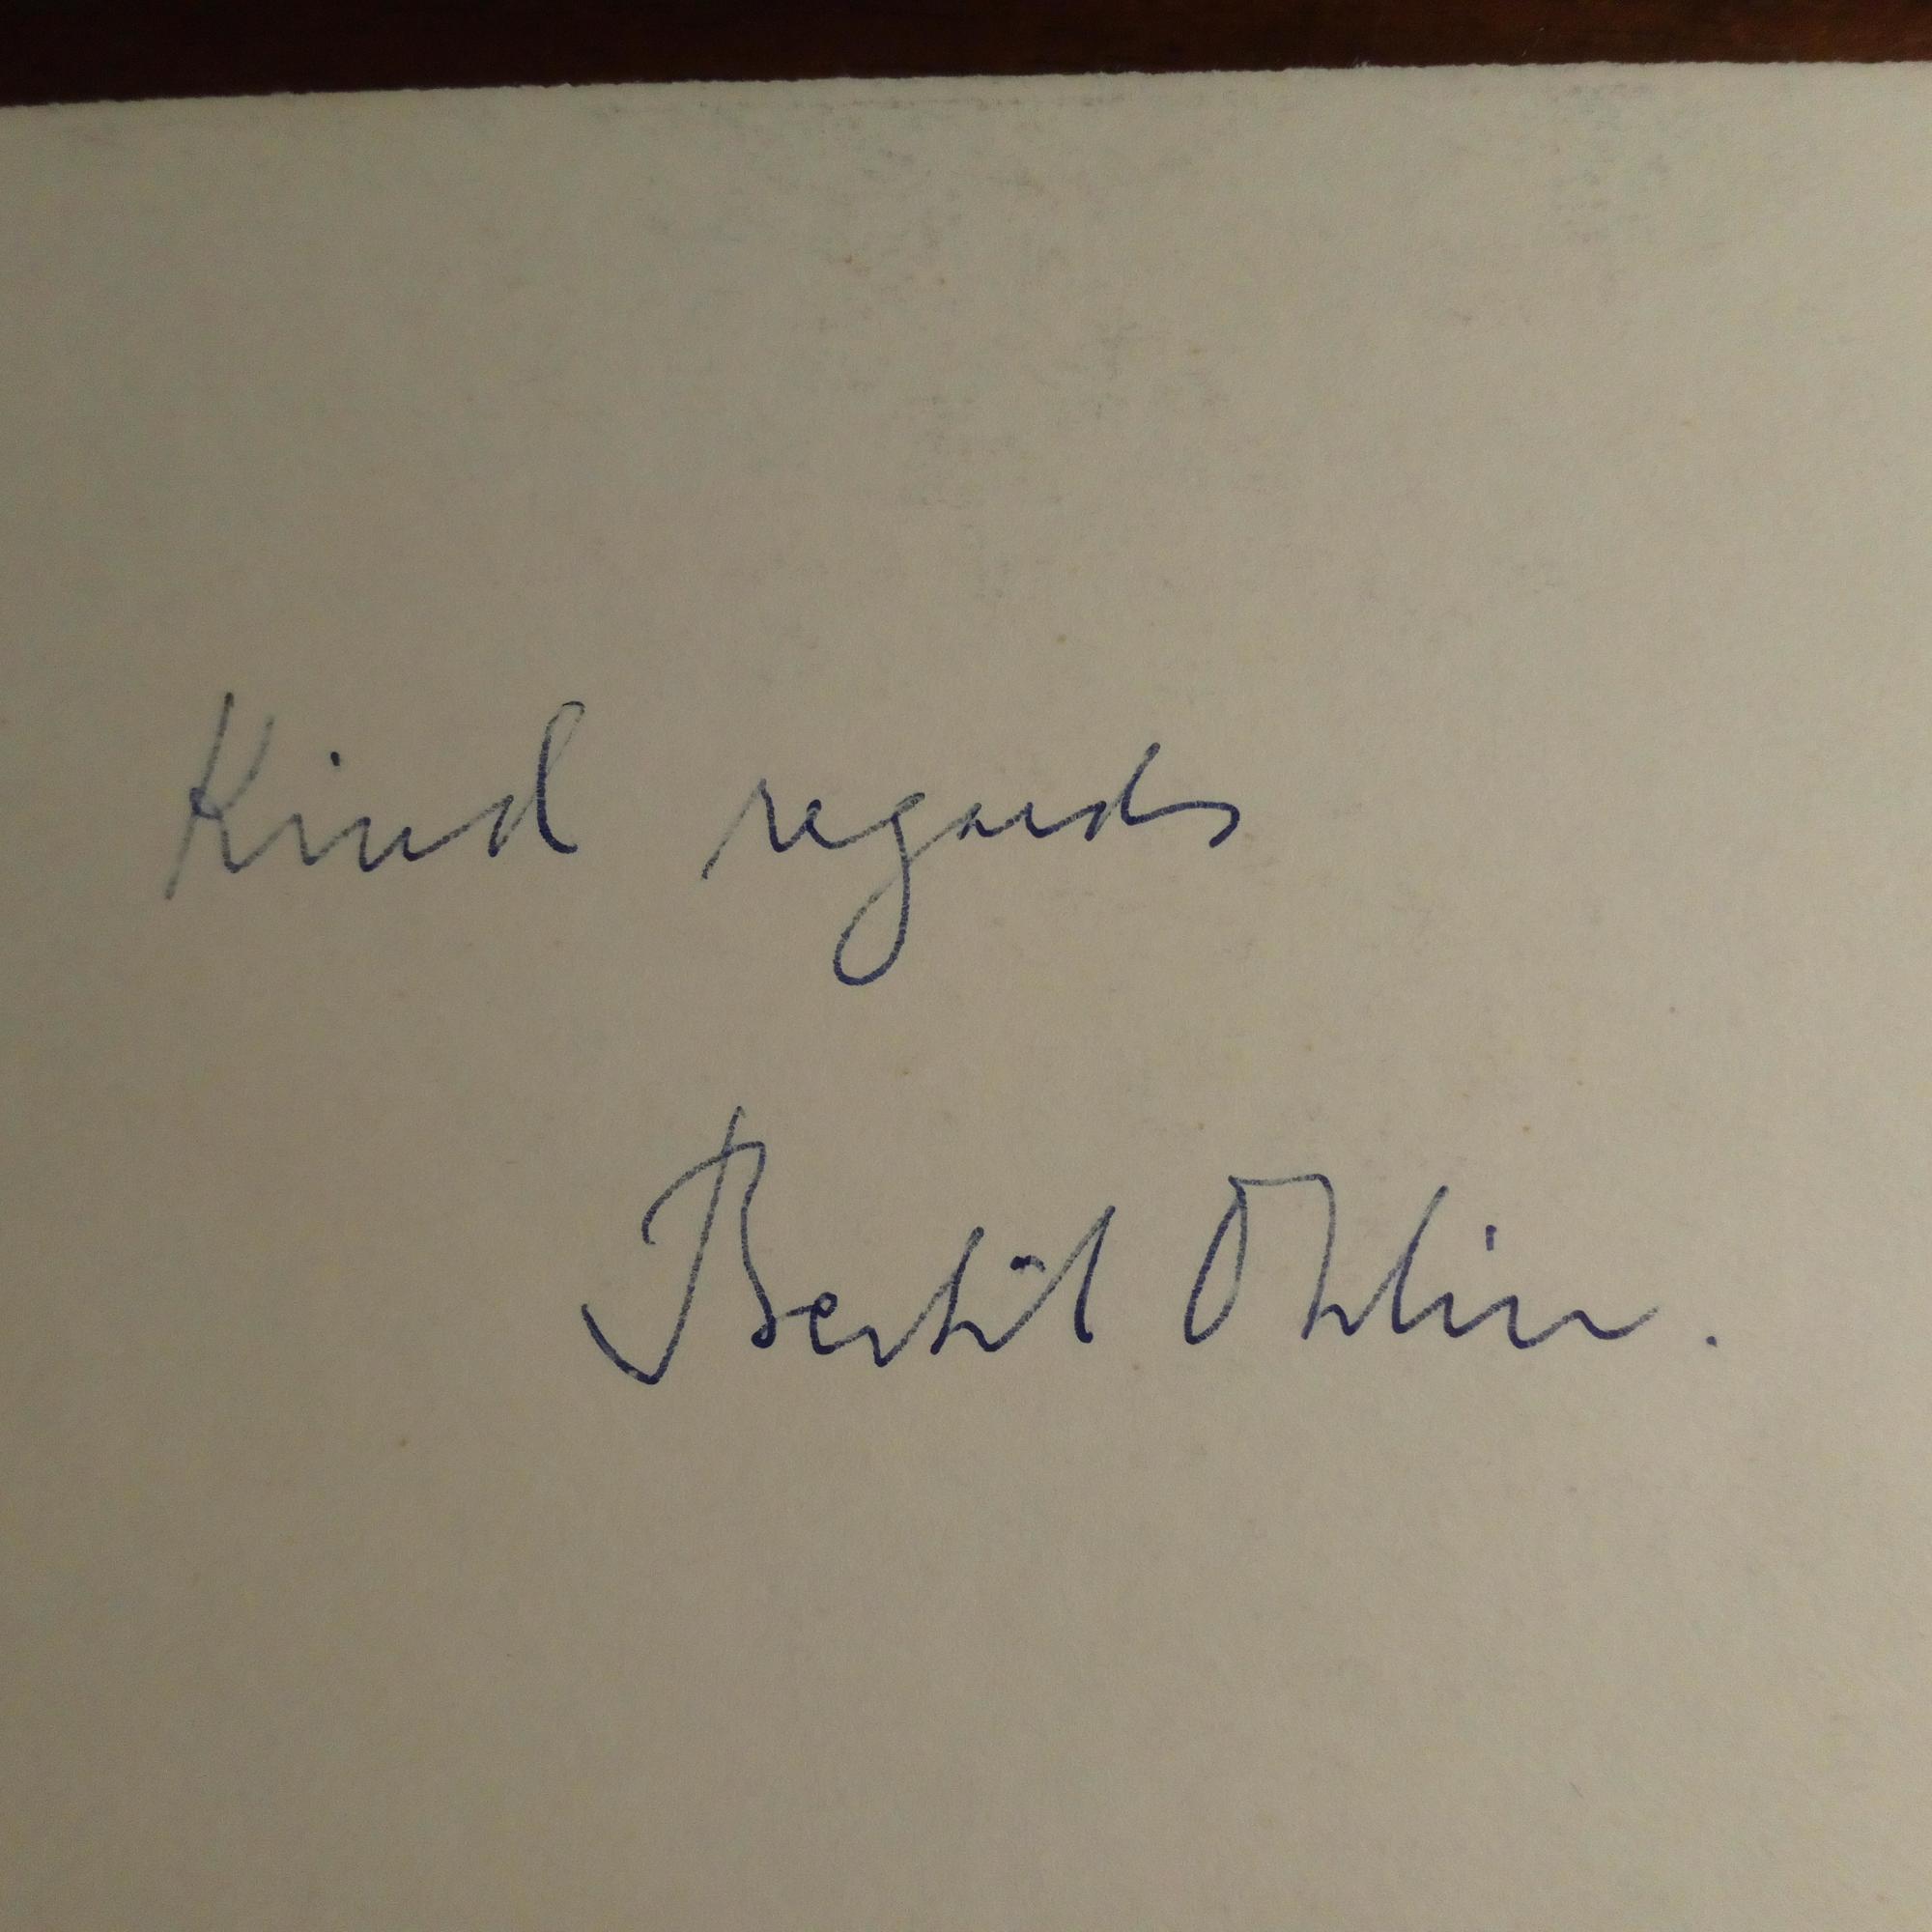 Kind regards
Bertil Ohlin.